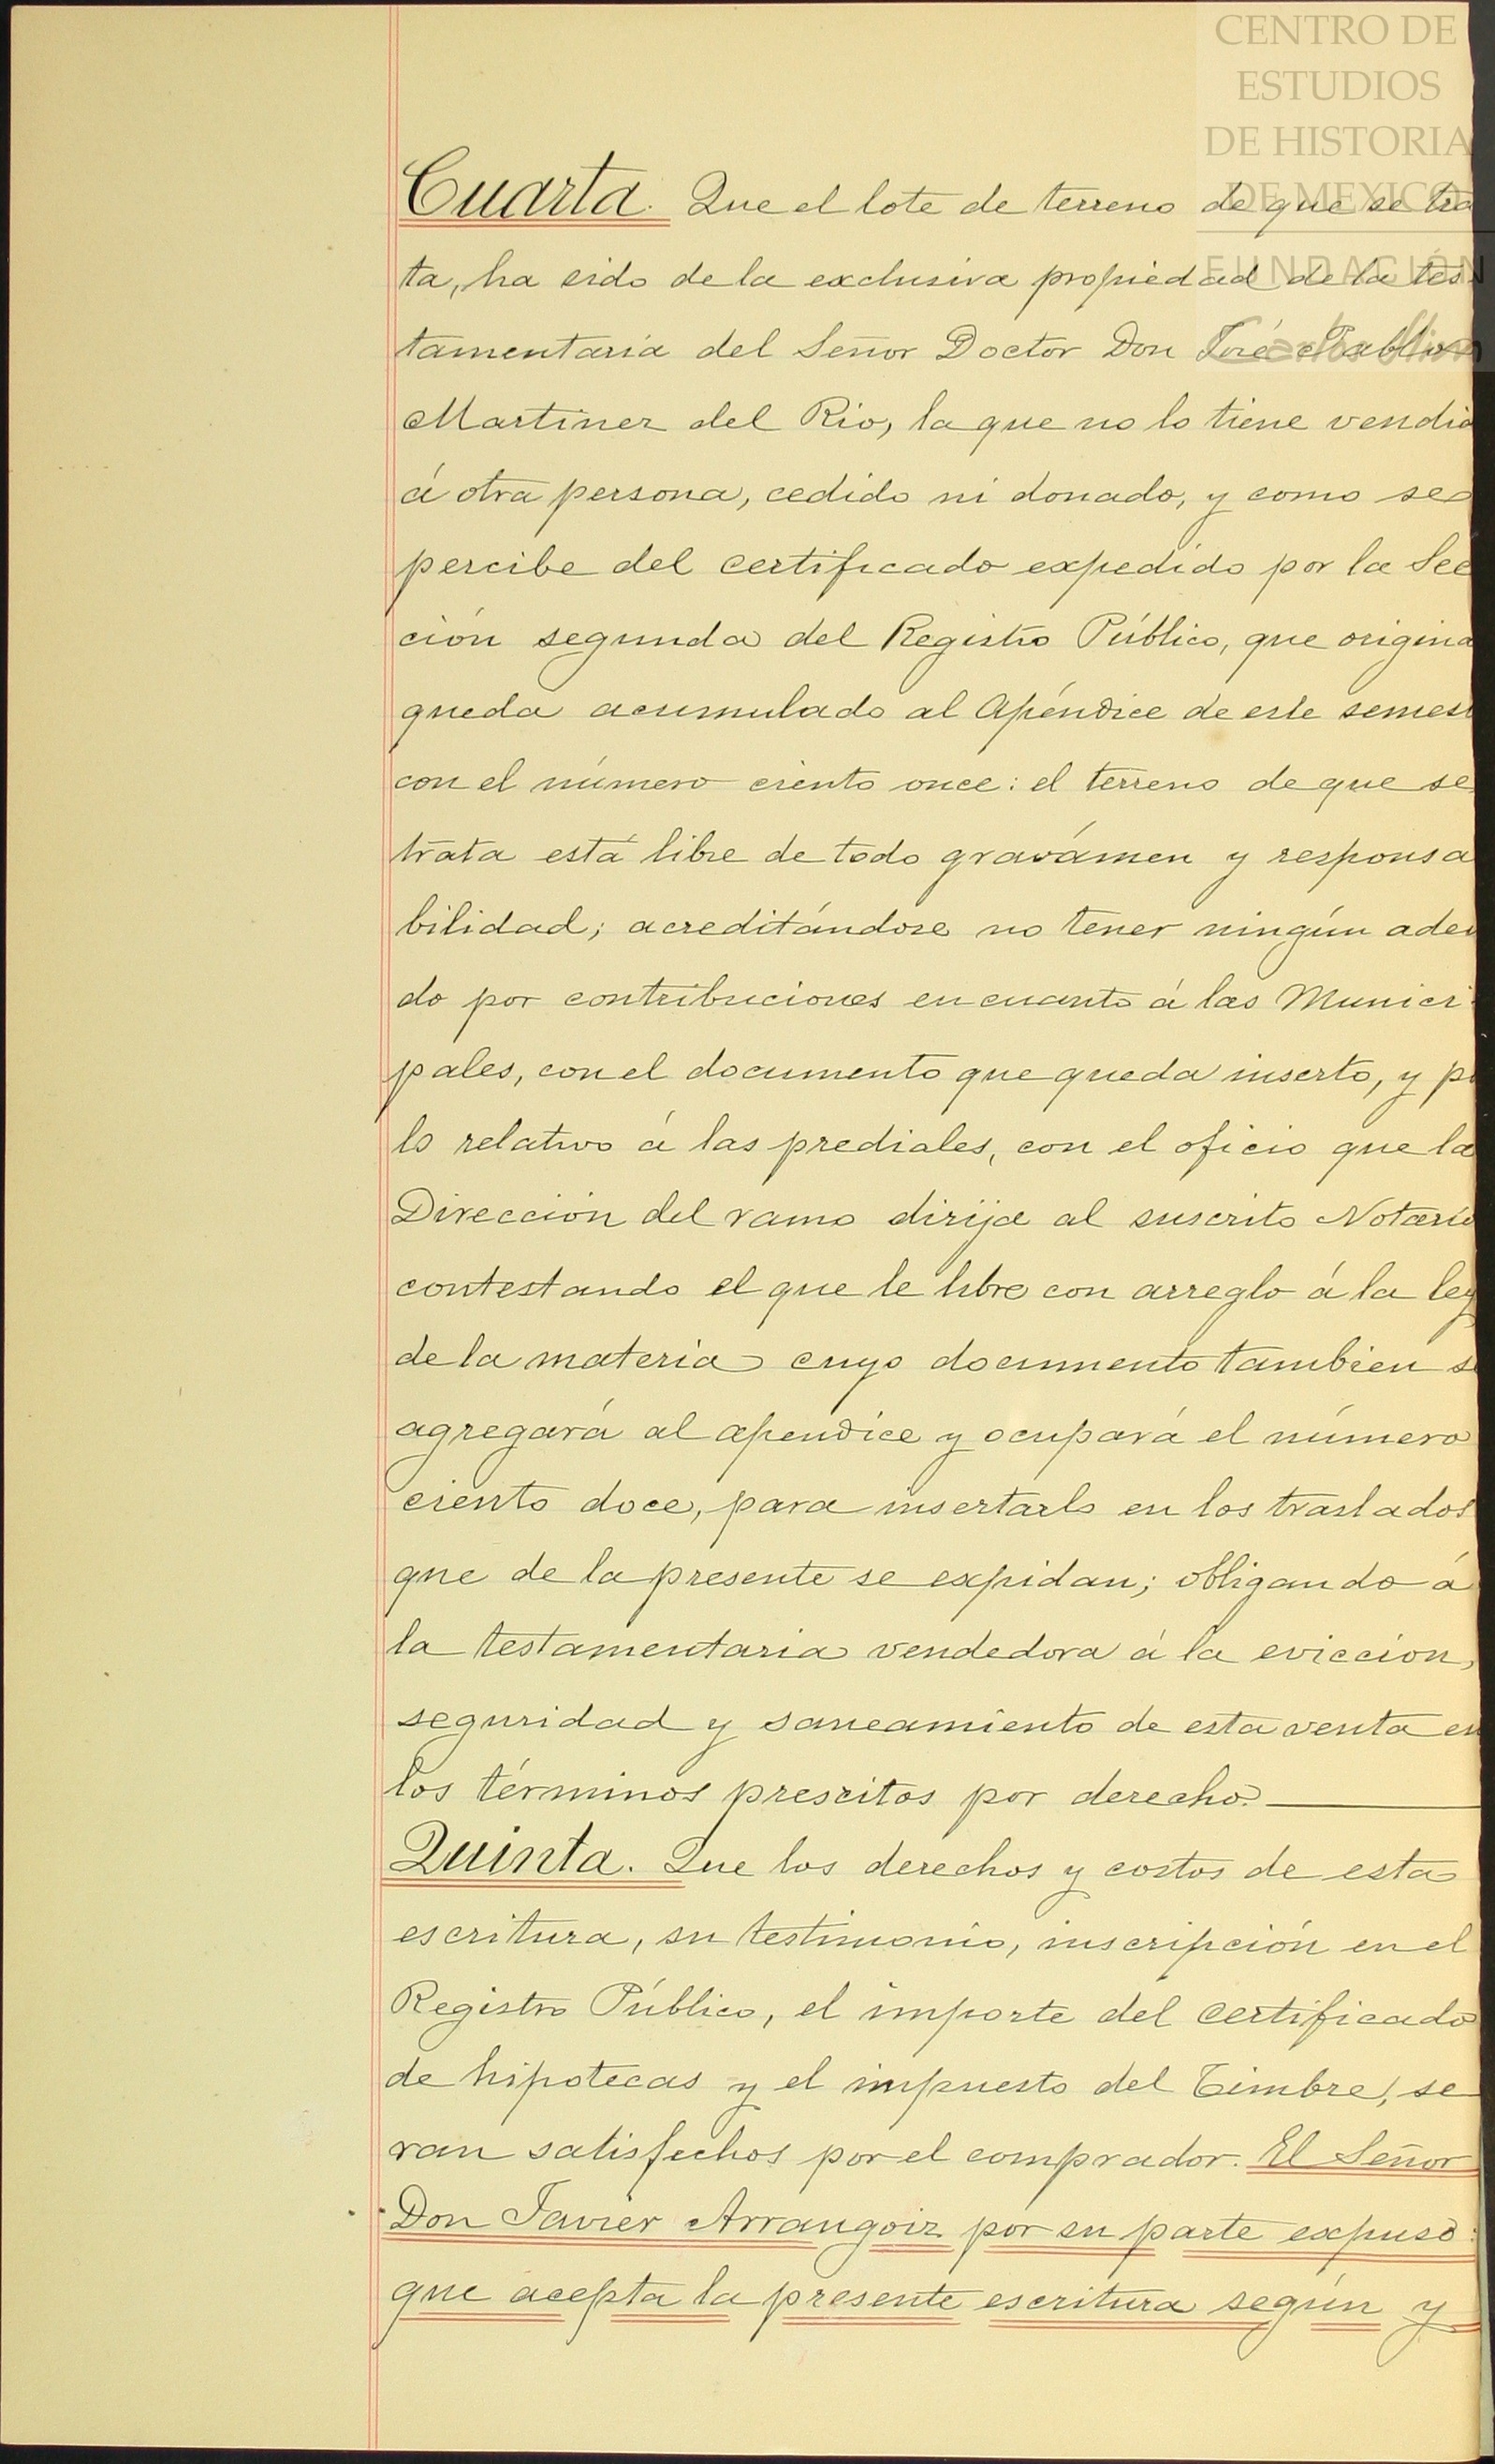 CENTRO DE
ESTUDIOS
DE HISTORIA
DE MEXICO
FUNDACIÓN
Carlos Slim
Cuarta. Que el lote de terreno de que se tra
ta, ha sido de la exclusiva propiedad de la tes
tamentaría del Señor Doctor Don José Pablo
Martinez del Rio, la que no lo tiene vendid
á otra persona, cedido ni donado, y como se
percibe del certificado expedido por la Sec
ción segunda del Registro Público, que origina
queda acumulado al Apéndice de este semest
con el número ciento once: el terreno de que se
trata está libre de todo gravámen y responsa
bilidad; acreditándose no tener ningún adeu
do por contribuciones en cuanto á las Munici
pales, con el documento que queda inserto, y po
lo relativo á las prediales, con el oficio que la
Dirección del ramo dirija al suscrito Notario
contestando el que le libre con arreglo á la ley
de la materia cuyo documento tambien s
agregará al apendice y ocupará el número
ciento doce, para insertarlo en los traslados
que de la presente se expidan; obligando á
la testamentaria vendedora á la evicción,
seguridad y saneamiento de esta venta en
los términos prescitos por derecho.
Quinta. Que los derechos y costos de esta
escritura, su testimonio, inscripción en el
Registro Público, el importe del certificado
de hipotecas y el impuesto del Timbre, se
ran satisfechos por el comprador. El Señor
Don Javier Arrangoiz por su parte expuso:
que acepta la presente escritura según y